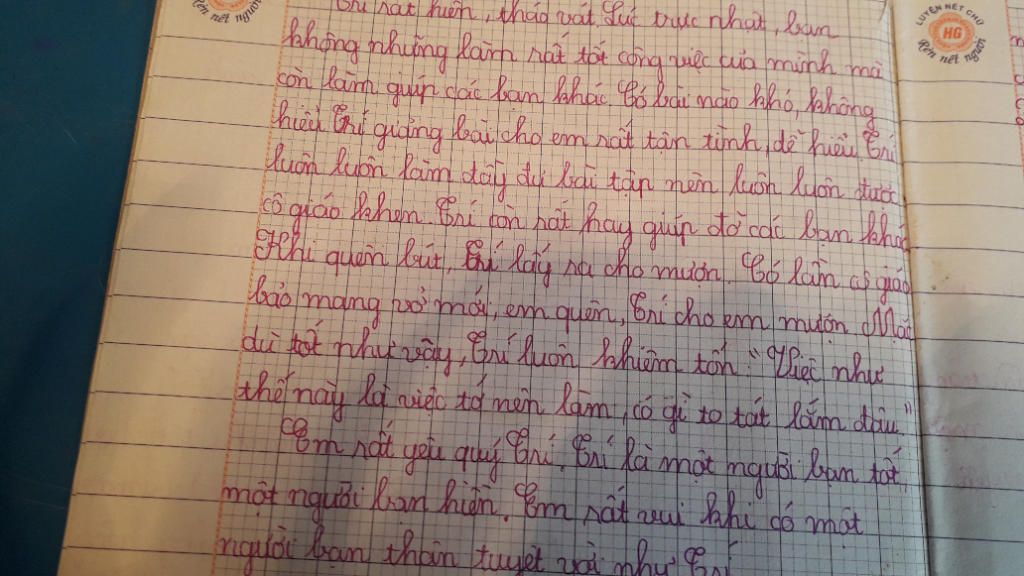 Trí rất hiền, tháo vát. Lúc trực nhật, bạn
không những làm rất tốt công việc của mình mà
còn làm giúp các bạn khác. Có bài nào khó, không
hiểu Trí giảng bài cho em rất tận tình, dễ hiểu. Trí
luôn luôn làm đầy đủ bài tập nên luôn luôn được
cô giáo khen. Trí còn rất hay giúp đỡ các bạn khác
Khi quên bút, Trí lấy ra cho mượn. Có lần cô giáo
bảo mang vở mới, em quên, Trí cho em mượn. Mặc
dù tốt như vậy, Trí luôn khiêm tốn: "Việc như
thế này là việc tớ nên làm, có gì to tát lắm đâu."
Em rất yêu quý Trí. Trí là một người bạn tốt,
một người bạn hiền. Em rất vui khi có một
người bạn thân tuyệt vời như Trí
LUYỆN NÉT CHỮ
HG
Rèn nết người
Rèn nết người